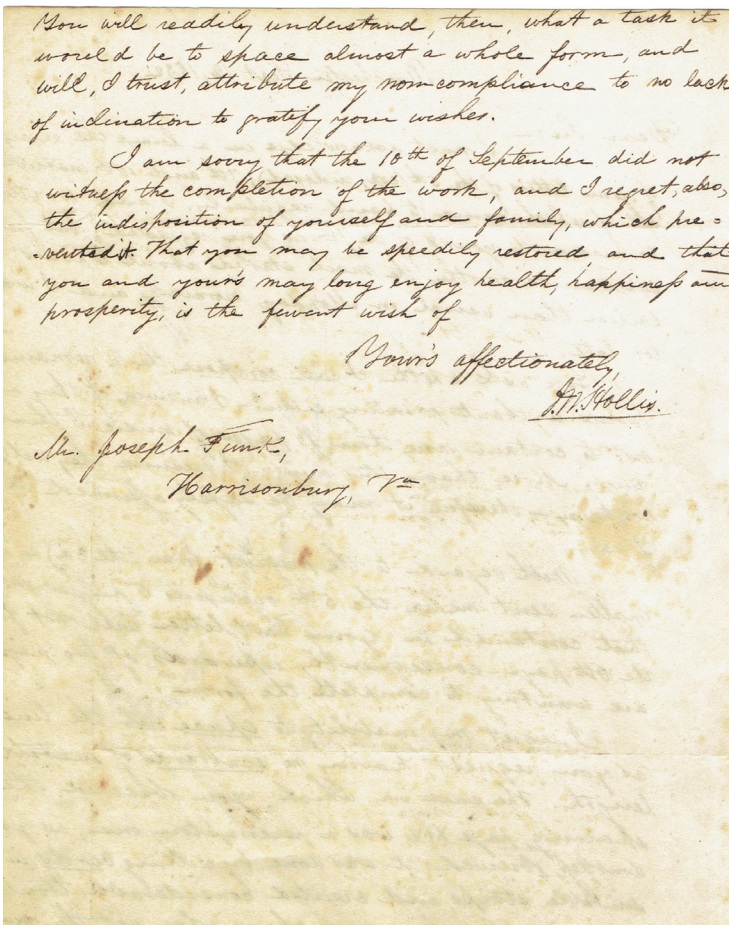 You will readily understand, then, what a task it
would be to space almost a whole form, and
will, I trust, attribute my noncompliance to no lack
of inclination to gratify your wishes.
I am sorry that the 10th of September did not
witness the completion of the work, and I regret, also,
the indisposition of yourself and family, which pre=
=vented it. That you may be speedily restored and that
you and your's may long enjoy health, happiness and
prosperity, is the fervent wish of
Your's affectionately,
J.W. Hollis.
Mr. Joseph Funk,
Harrisonburg, Va